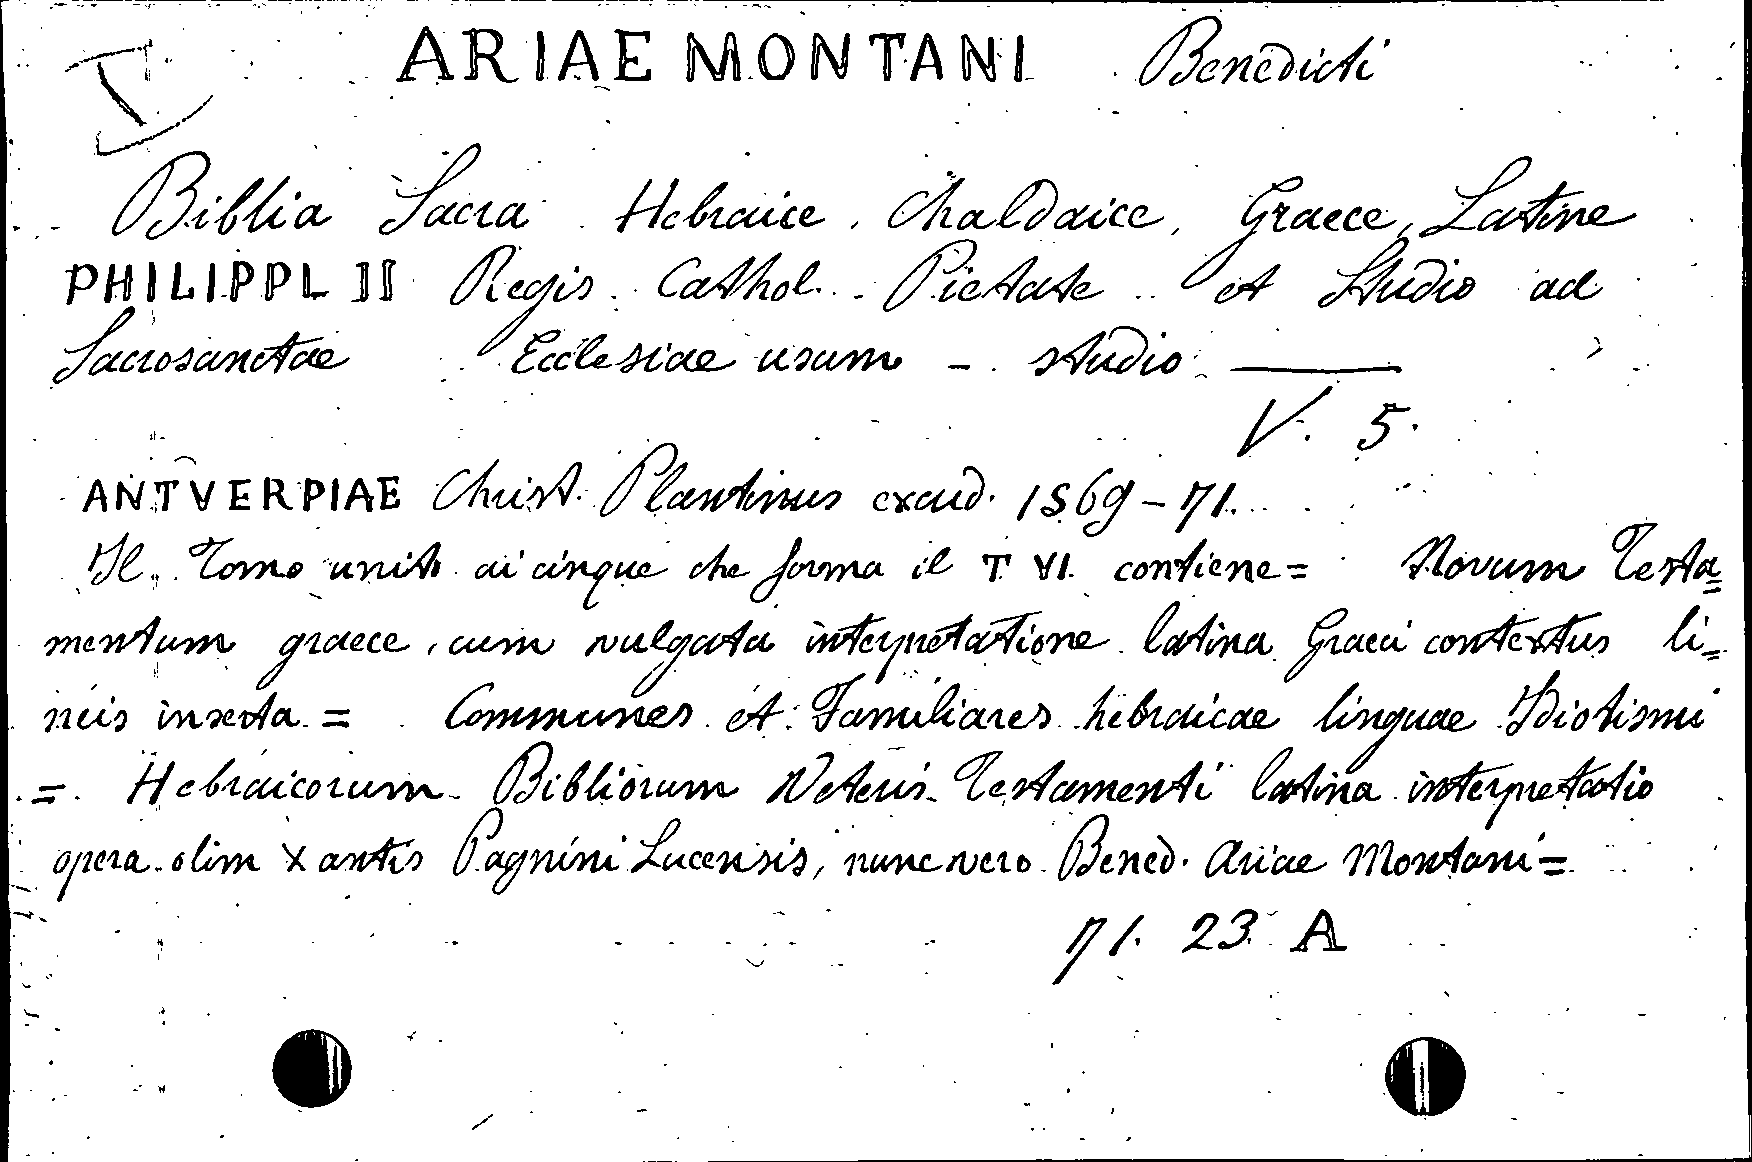 ARIAE MONTANI Benedicti
Biblia Sacra Hebraice, Chaldaice, Graece, Latine
PHILIPPI II Regis Cathol. Pietate et Studio ad
Sacrosanctae Ecclesiae usum - studio
V. 5.
ANTVERPIAE Christ. Plantinus excud. 1569-71.
Il Tomo unito ai cinque che forma il T VI contiene = Novum Testa=
mentum graece, cum vulgata interpretatione latina Graeci contextus li=
neis inserta = Communes et Familiares hebraicae linguae Idiotismi
= Hebraicorum Bibliorum Veteris Testamenti latina interpretatio
opera olim Xantis Pagnini Lucensis, nunc vero Bened. Ariae Montani =
71. 23. A